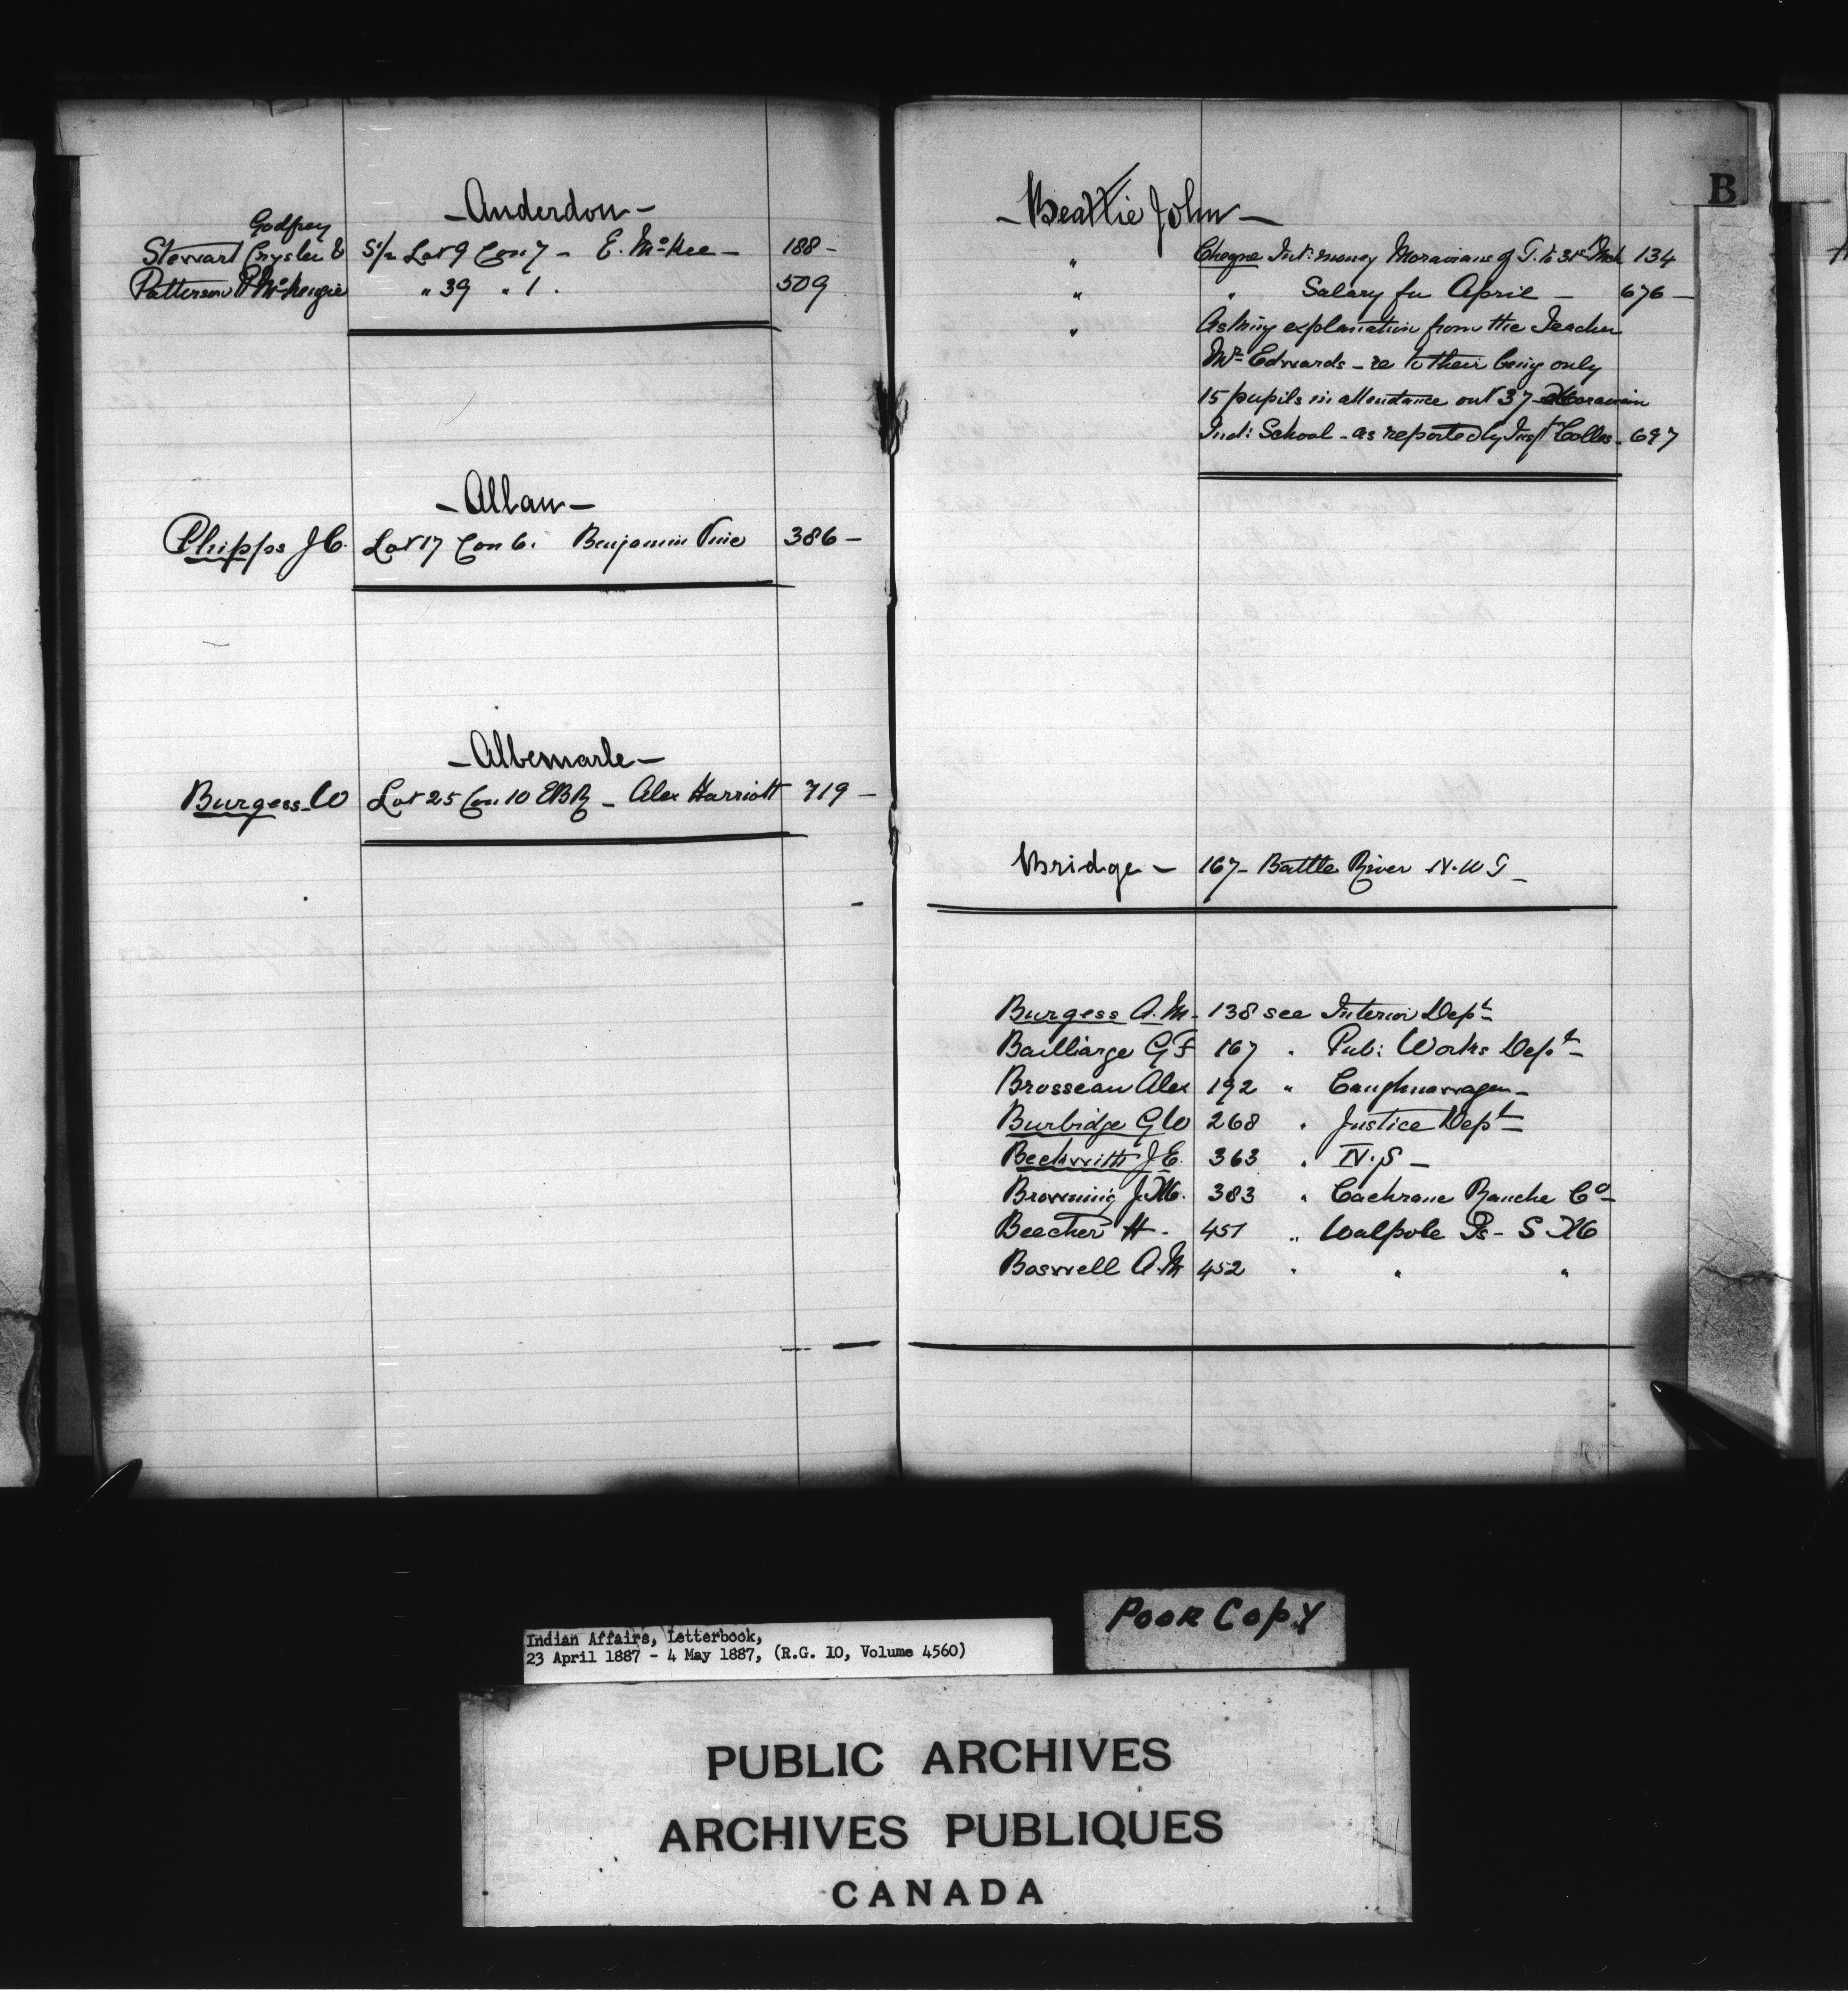 - Anderdon -
Stewart Crysler & Godfrey S½ Lot 9 Con 7 - E. McKee - 188 -
Patterson & McKenzie " 39 " 1. 509
- Allan -
Phipps J C. Lot 17 Con 6. Benjamin Vine 386 -
- Albemarle -
Burgess W Lot 25 Con 10 EBR - Alex Harriott 719 -
B
- Beattie John -
" Cheque Int: money Moravians of T. to 31st Mch 134
" " Salary for April - 676 -
" Asking explanation from the Teacher
Mr Edwards - re to their being only
15 pupils in attendance out 37 - Moravian
Ind: School - as reported by Inspr Colles - 697
Bridge - 167 - Battle River N.W T -
Burgess A. M. 138 see Interior Dept
Bailliarge G F 167 " Pub: Works Dept -
Brosseau Alex 192 " Caughnawaga -
Burbidge G W 268 " Justice Dept
Beckwith J E. 363 " N.S -
Browning J. M. 383 " Cochrane Ranche Co -
Beecher H - 451 " Walpole Is - S M
Boswell A. M 452 " " "
Indian Affairs, Letterbook,
23 April 1887 - 4 May 1887, (R.G. 10, Volume 4560)
POOR COPY
PUBLIC ARCHIVES
ARCHIVES PUBLIQUES
CANADA